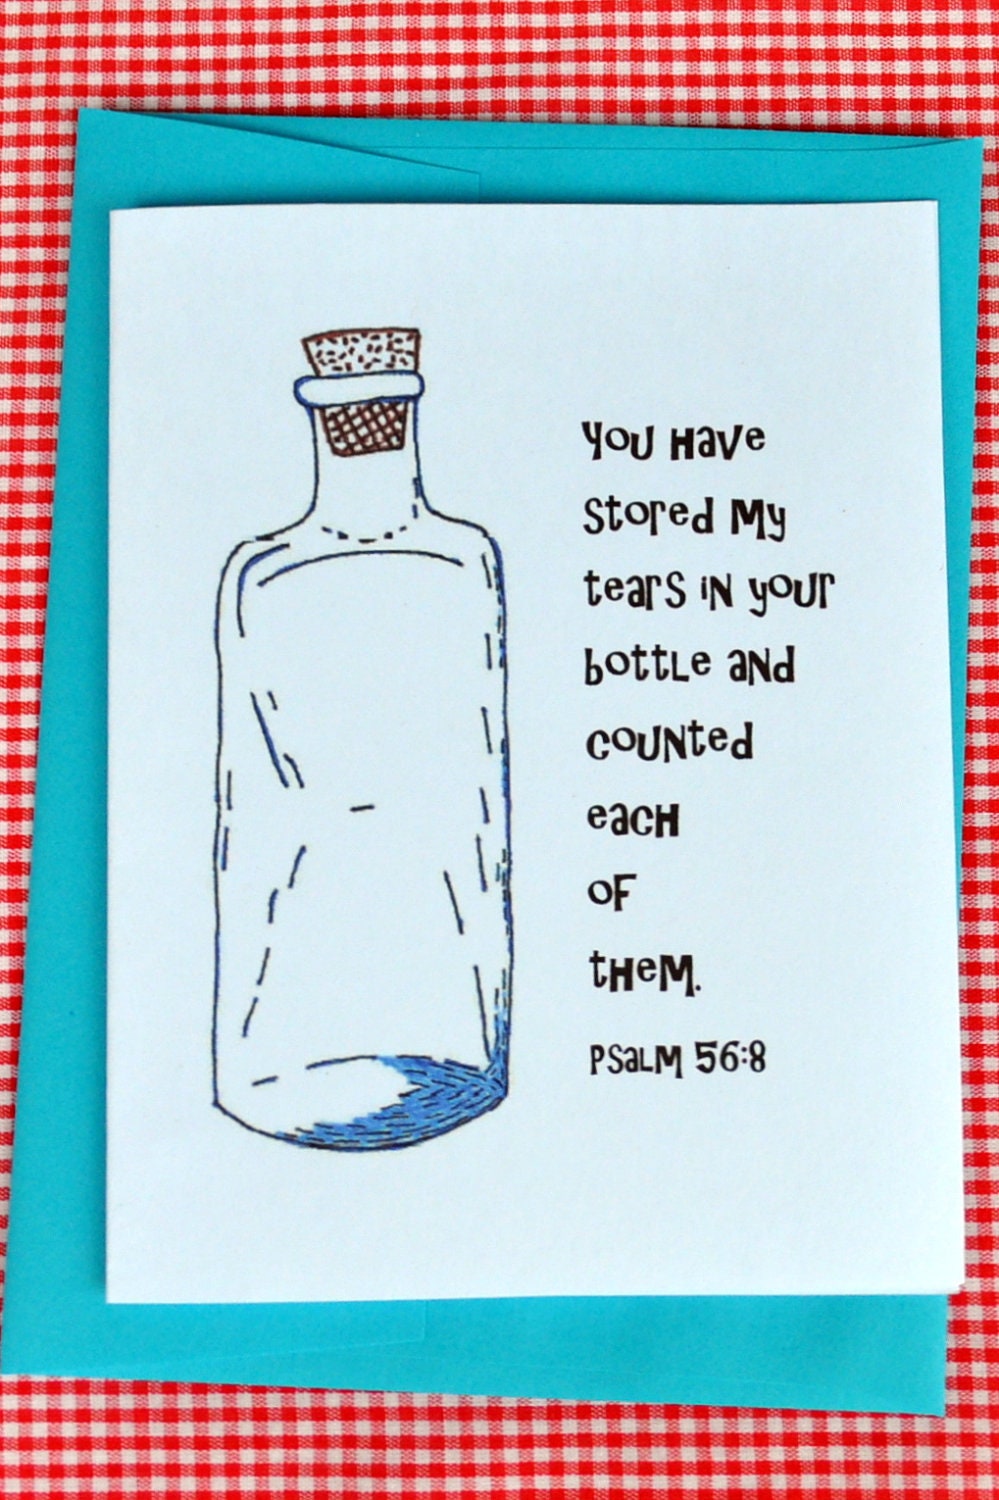 You Have
stored My
tears in your
bottle and
counted
each
of
them.
Psalm 56:8